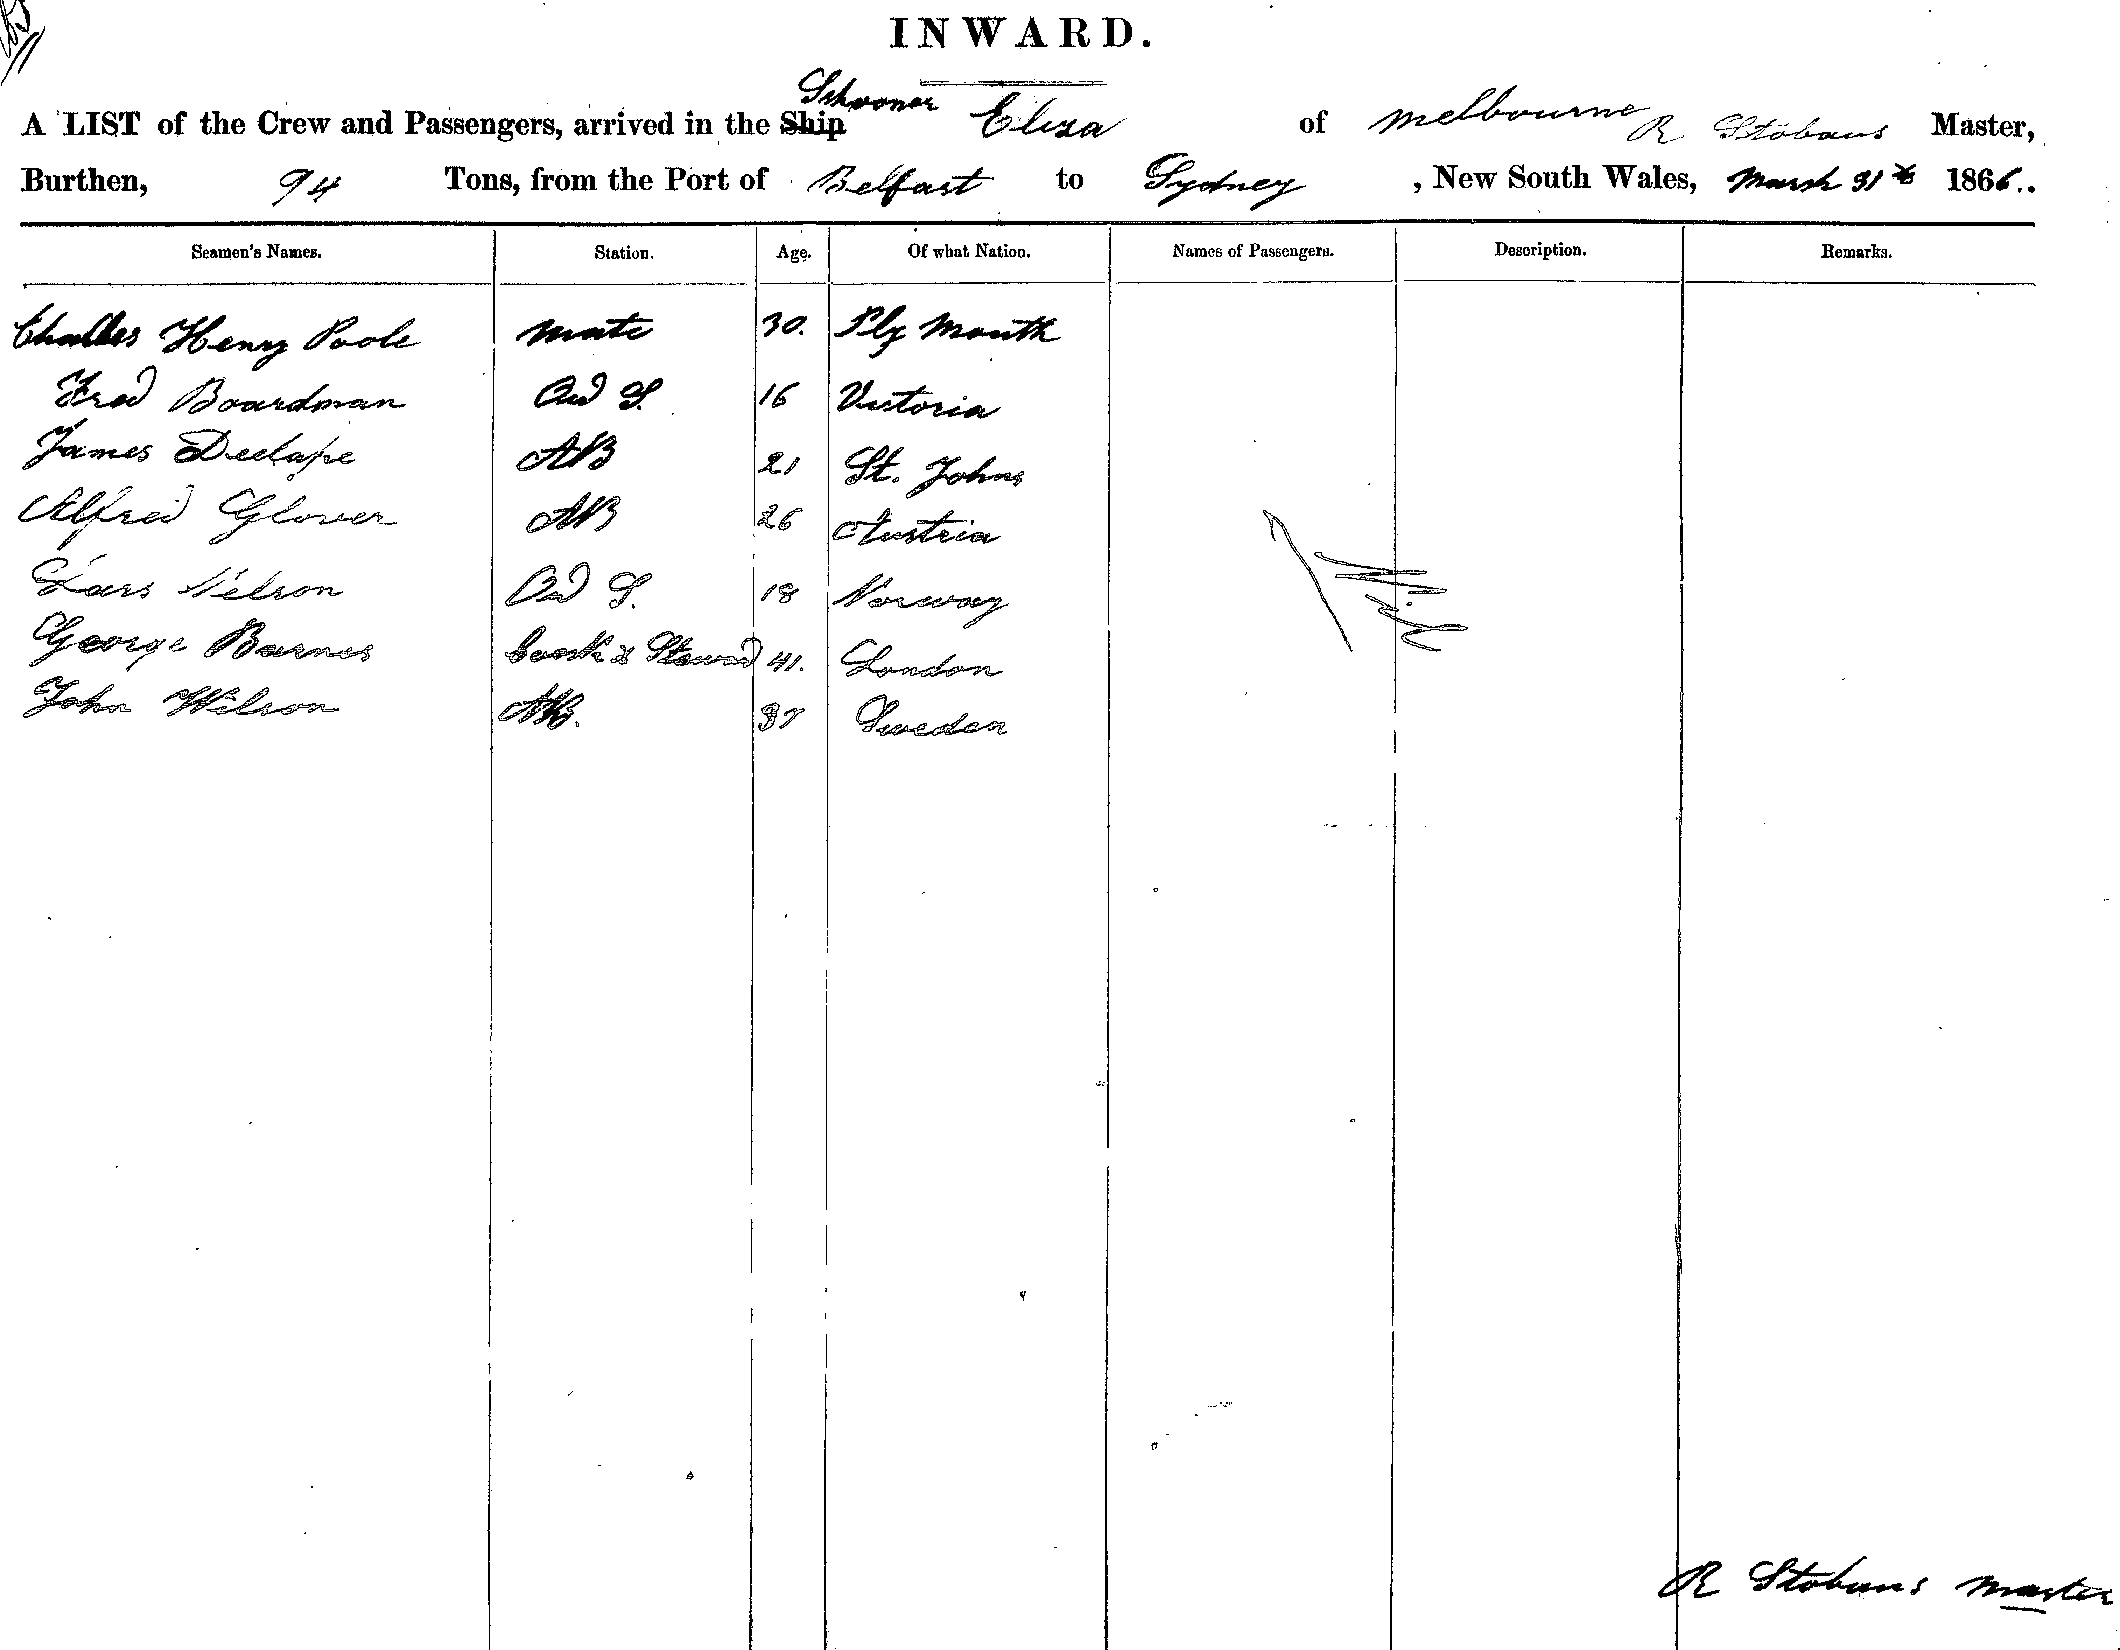 INWARD.
Schooner
A LIST of the Crew and Passengers, arrived in the Ship Eliza of Melbourne R Stobans Master,
Burthen, 94 Tons, from the Port of Belfast to Sydney, New South Wales, March 31st 1866..
Seamen's Names. Station. Age. Of what Nation. Names of Passengers. Description. Remarks.
Charles Henry Poole Mate 30. Ply Mouth
Fred Boardman Ord S. 16 Victoria
James Declape AB 21 St. Johns
Alfred Glover AB 26 Austria
Lars Nelson Ord S. 18 Norway
George Barnes Cook & Steward 41. London
John Wilson AB. 37 Sweden
R Stobans Master